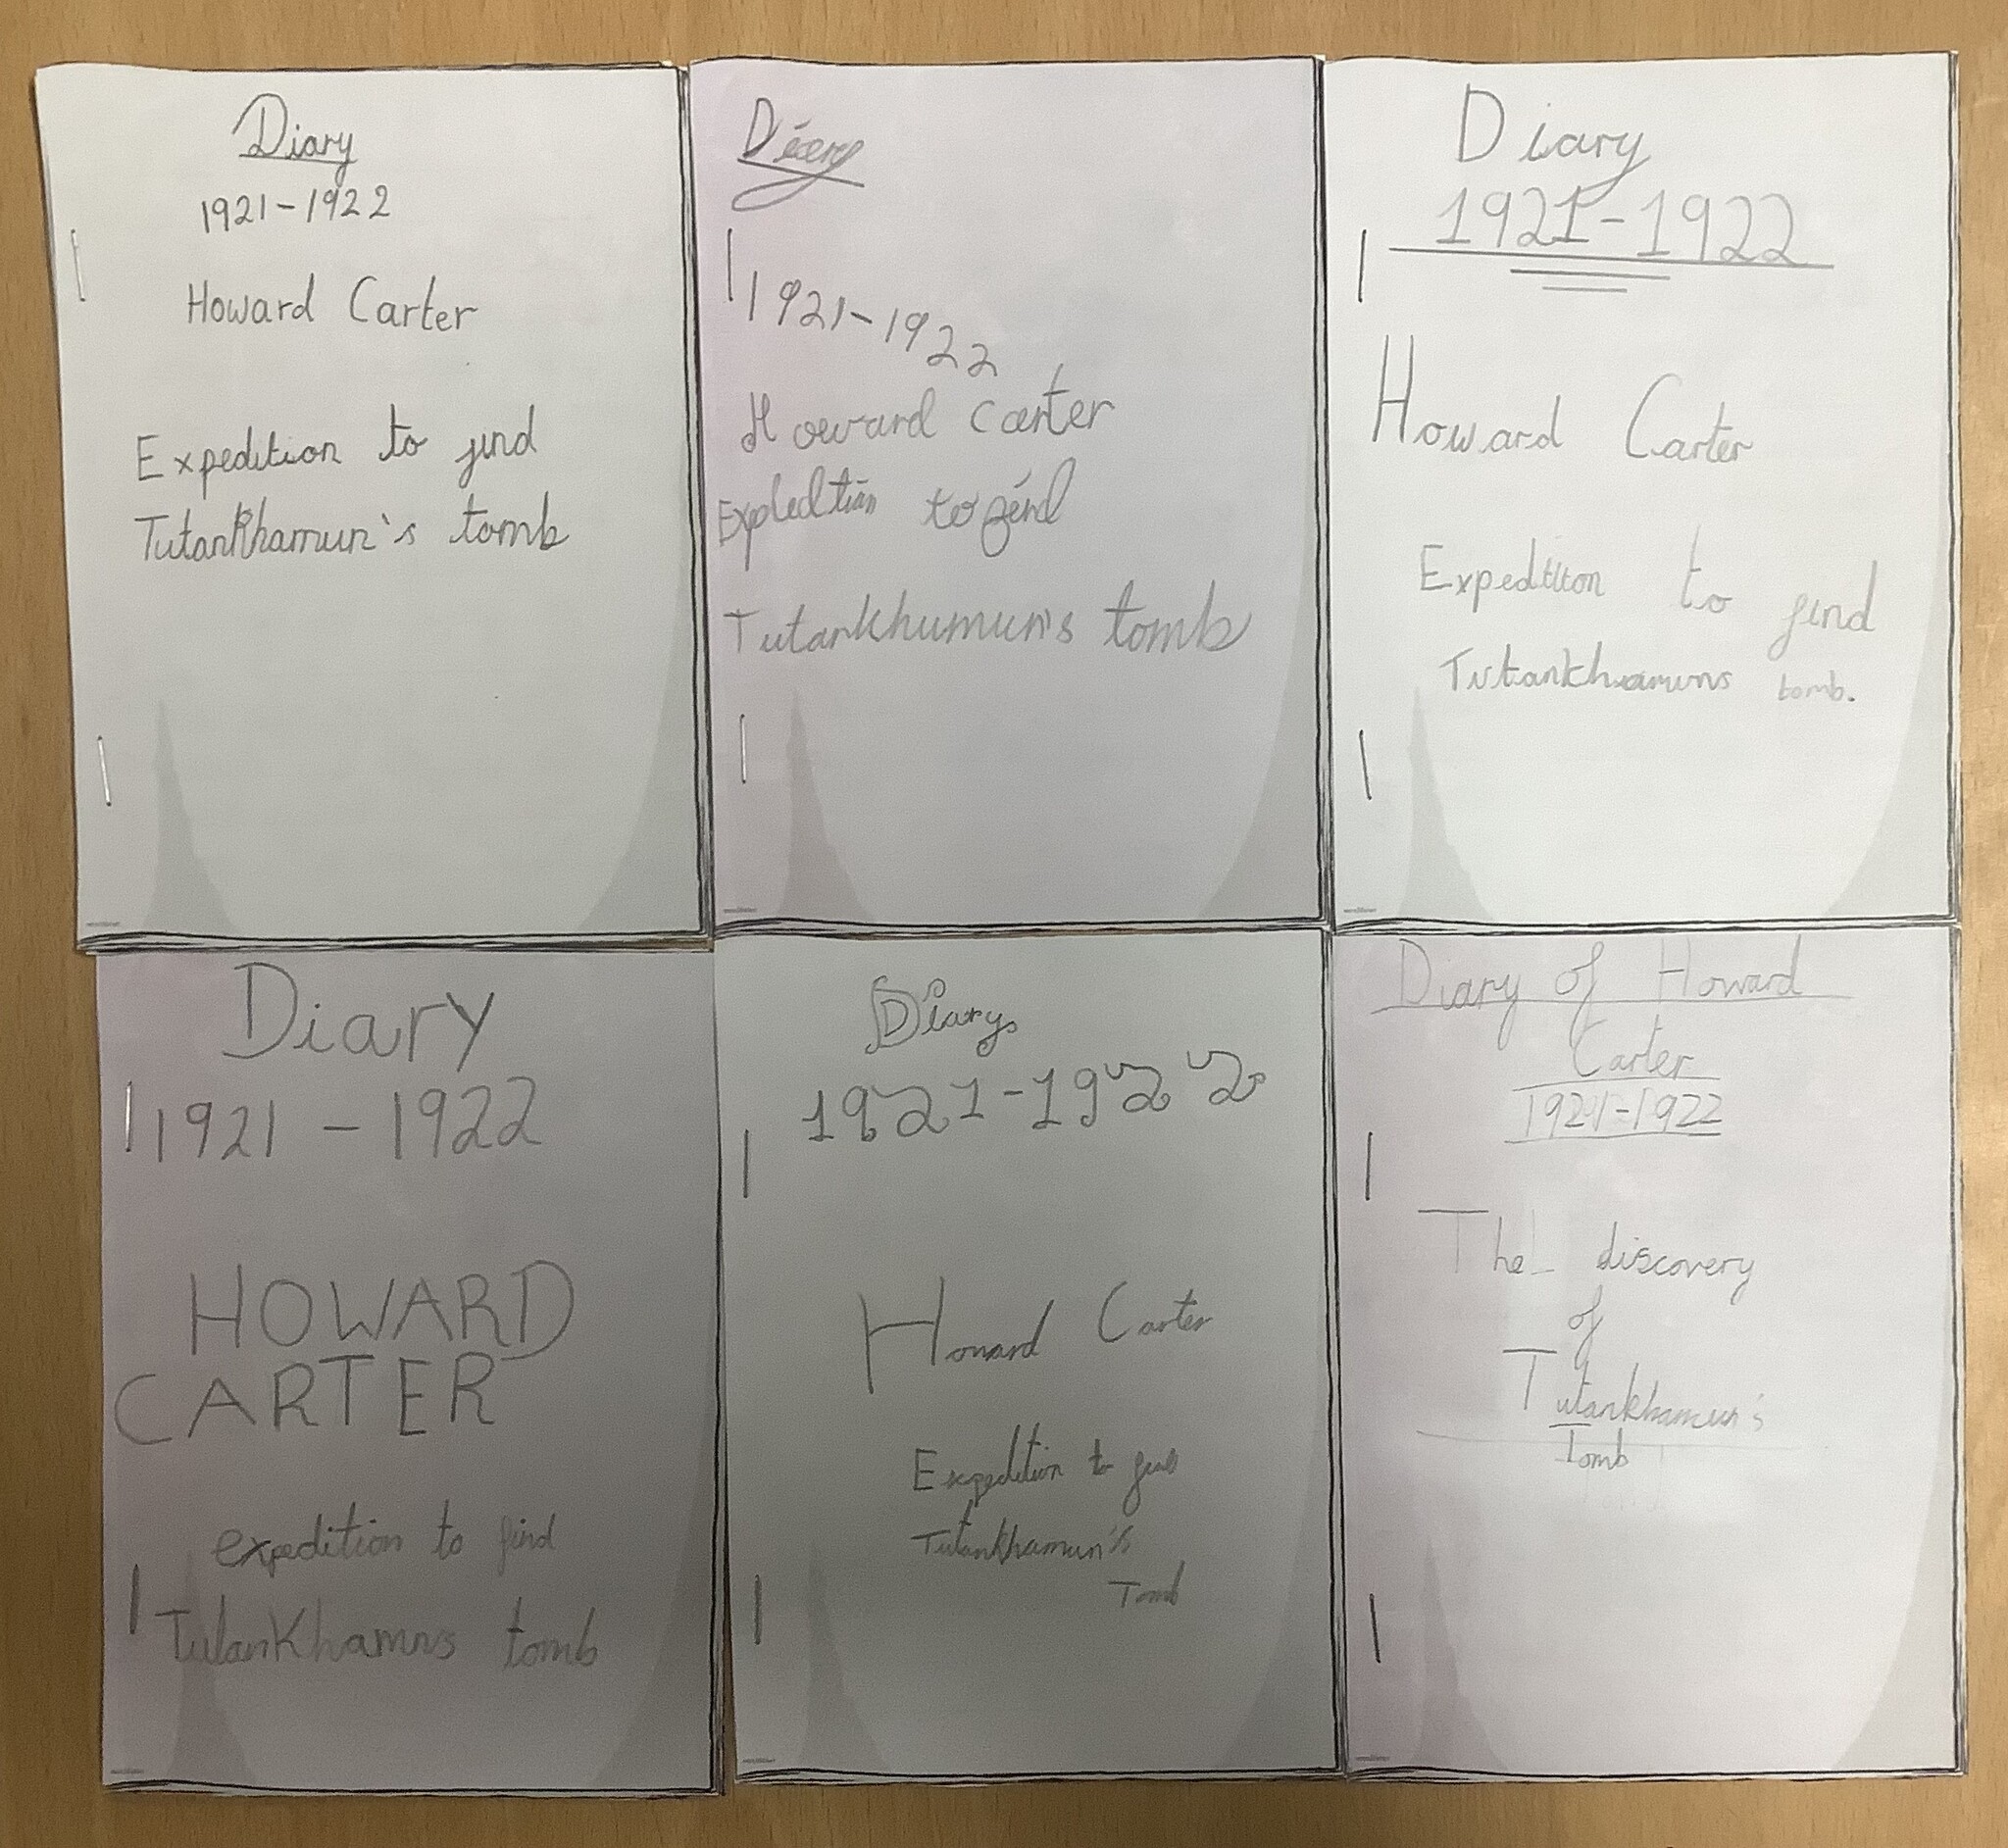 Diary
1921-1922
Howard Carter
Expedition to find
Tutankhamun's tomb
Diary
1921-1922
Howard Carter
Expledition to find
Tutankhumun's tomb
Diary
1921-1922
Howard Carter
Expedition to find
Tutankhamuns tomb.
Diary
1921 - 1922
HOWARD
CARTER
expedition to find
TutanKhamns tomb
Diary
1921-1922
Howard Carter
Expedition to find
Tutankhamun's
Tomb
Diary of Howard
Carter
1921-1922
The discovery
of
Tutankhamun's
Tomb